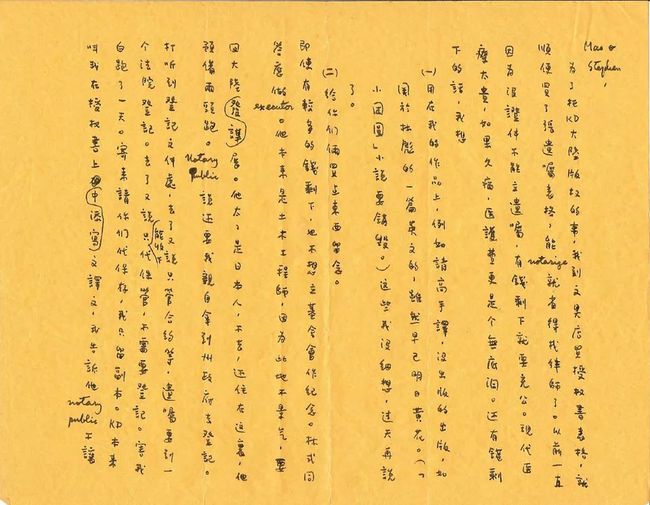 Mae &
Stephen,
為了托KD大陸版权的事，我到文具店買授权書表格，就
順便買了張遺囑表格，能notarize就省得找律師了。以前一直
因為沒證件不能立遺囑，有錢剩下就要充公。現代医
療太貴，如果久病，医護費更是个無底洞。还有錢剩
下的話，我想
(一)用在我的作品上，例如請高手譯，沒出版的出版，如
関於林彪的一篇英文的，雖然早已明日黃花。(「
小団圓」小說要銷毀。)這些我沒細想，过天再說
了。
(二)給你们倆買点東西留念。
即使有較多的錢剩下，也不想立基金會作紀念。林式同
答應做executor。他本來是土木工程師，因為此地不景气，要
回大陸發展。他太太是日本人，不去，还住在這裏，他
預備兩頭跑。Notary Public說还要我親自拿到州政府去登記。
打听到登記文件處，去了又說只管合約等，遺囑要到一
个法院登記。去了又說只能收下代保管，不需要登記。害我
白跑了一天。寄來請你们代保存，我只留副本。KD本來
叫我在授权書上用中添寫文譯文，我告訴他notary public不讓